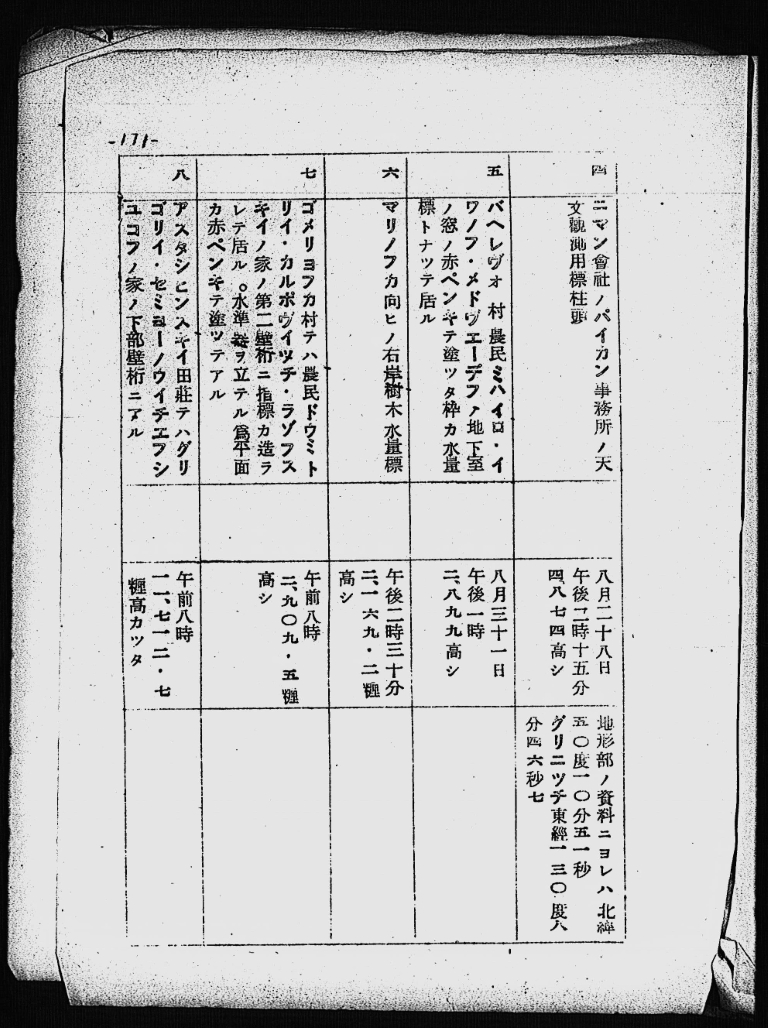 -171-
四
ニマン會社ノバイカン事務所ノ天
文觀測用標柱頭
八月二十八日
午後二時十五分
四、八七四高シ
地形部ノ資料ニヨレハ北緯
五〇度一〇分五一秒
グリニツチ東經一三〇度八
分四六秒七
五
バヘレヴォ村農民ミハイロ・イ
ワノフ・メドヴエーデファ地下室
ノ窓ノ赤ペンキテ塗ツタ枠カ水量
標トナツテ居ル
八月三十一日
午後一時
二、八九九高シ
六
マリノフカ向ヒノ右岸樹木水量標
午後二時三十分
二、一六九・二糎
高シ
七
ゴメリヨフカ村テハ農民ドウミト
リイ・カルポヴイツチ・ラゾフス
キイノ家ノ第二壁桁ニ指標カ造ラ
レテ居ル。水準器ヲ立テル爲平面
カ赤ペンキテ塗ツテアル
午前八時
二、九〇九・五糎
高シ
八
アスタシヒンスキイ田莊テハグリ
ゴリイ・セミヨーノウイチエフシ
ユコフノ家ノ下部壁桁ニアル
午前八時
一一、七一二・七
糎高カツタ